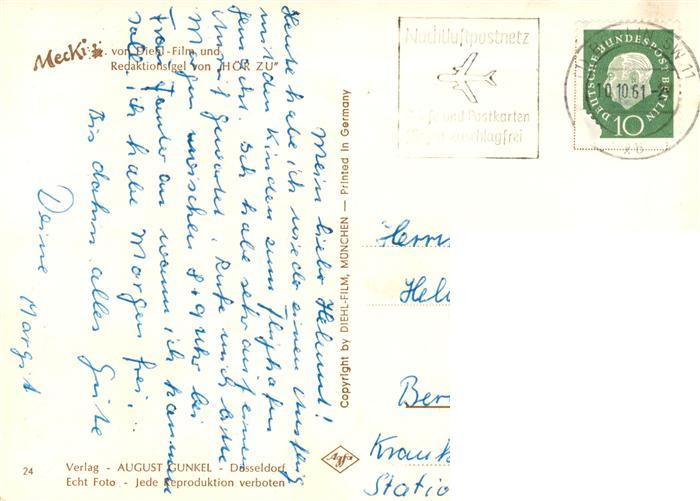 Mecki
von Diehl-Film und
Redaktionsigel von "HÖR ZU"
Mein lieber Helmut!
Heute habe ich wieder einen Ausflug
mit den Kindern zum Flughafen
gemacht. Ich habe sehr auf einen
Anruf gewartet. Rufe mich bitte
Morgen zwischen 8 + 9 Uhr bei
Frau an wann ich kommen
soll. ich habe Morgen frei.
Bis dahin alles Gute
Deine Margit
24
Verlag - AUGUST GUNKEL - Düsseldorf
Echt Foto - Jede Reproduktion verboten
Copyright by DIEHL-FILM, MÜNCHEN — Printed in Germany
Agfa
Nachtluftpostnetz
Briefe und Postkarten
fliegen zuschlagfrei
BERLIN SW 11
10.10.61
xb
DEUTSCHE BUNDESPOST BERLIN
10
Herrn
Hel
Ber
Krank
Statio